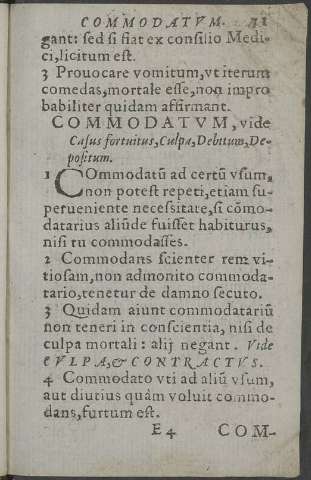 COMMODATVM. 71
gant: sed si fiat ex consilio Medi-
ci, licitum est.
3 Prouocare vomitum, vt iterum
comedas, mortale esse, non impro
babiliter quidam affirmant.
COMMODATVM, vide
Casus fortuitus, Culpa, Debitum, De-
positum.
1 COmmodatũ ad certũ vsum,
non potest repeti, etiam su-
perueniente necessitate, si cõmo-
datarius aliũde fuisset habiturus,
nisi tu commodasses.
2 Commodans scienter rem vi-
tiosam, non admonito commoda-
tario, tenetur de damno secuto.
3 Quidam aiunt commodatariũ
non teneri in conscientia, nisi de
culpa mortali: alij negant. Vide
CVLPA, & CONTRACTVS.
4 Commodato vti ad aliũ vsum,
aut diutius quàm voluit commo-
dans, furtum est.
E 4 COM-